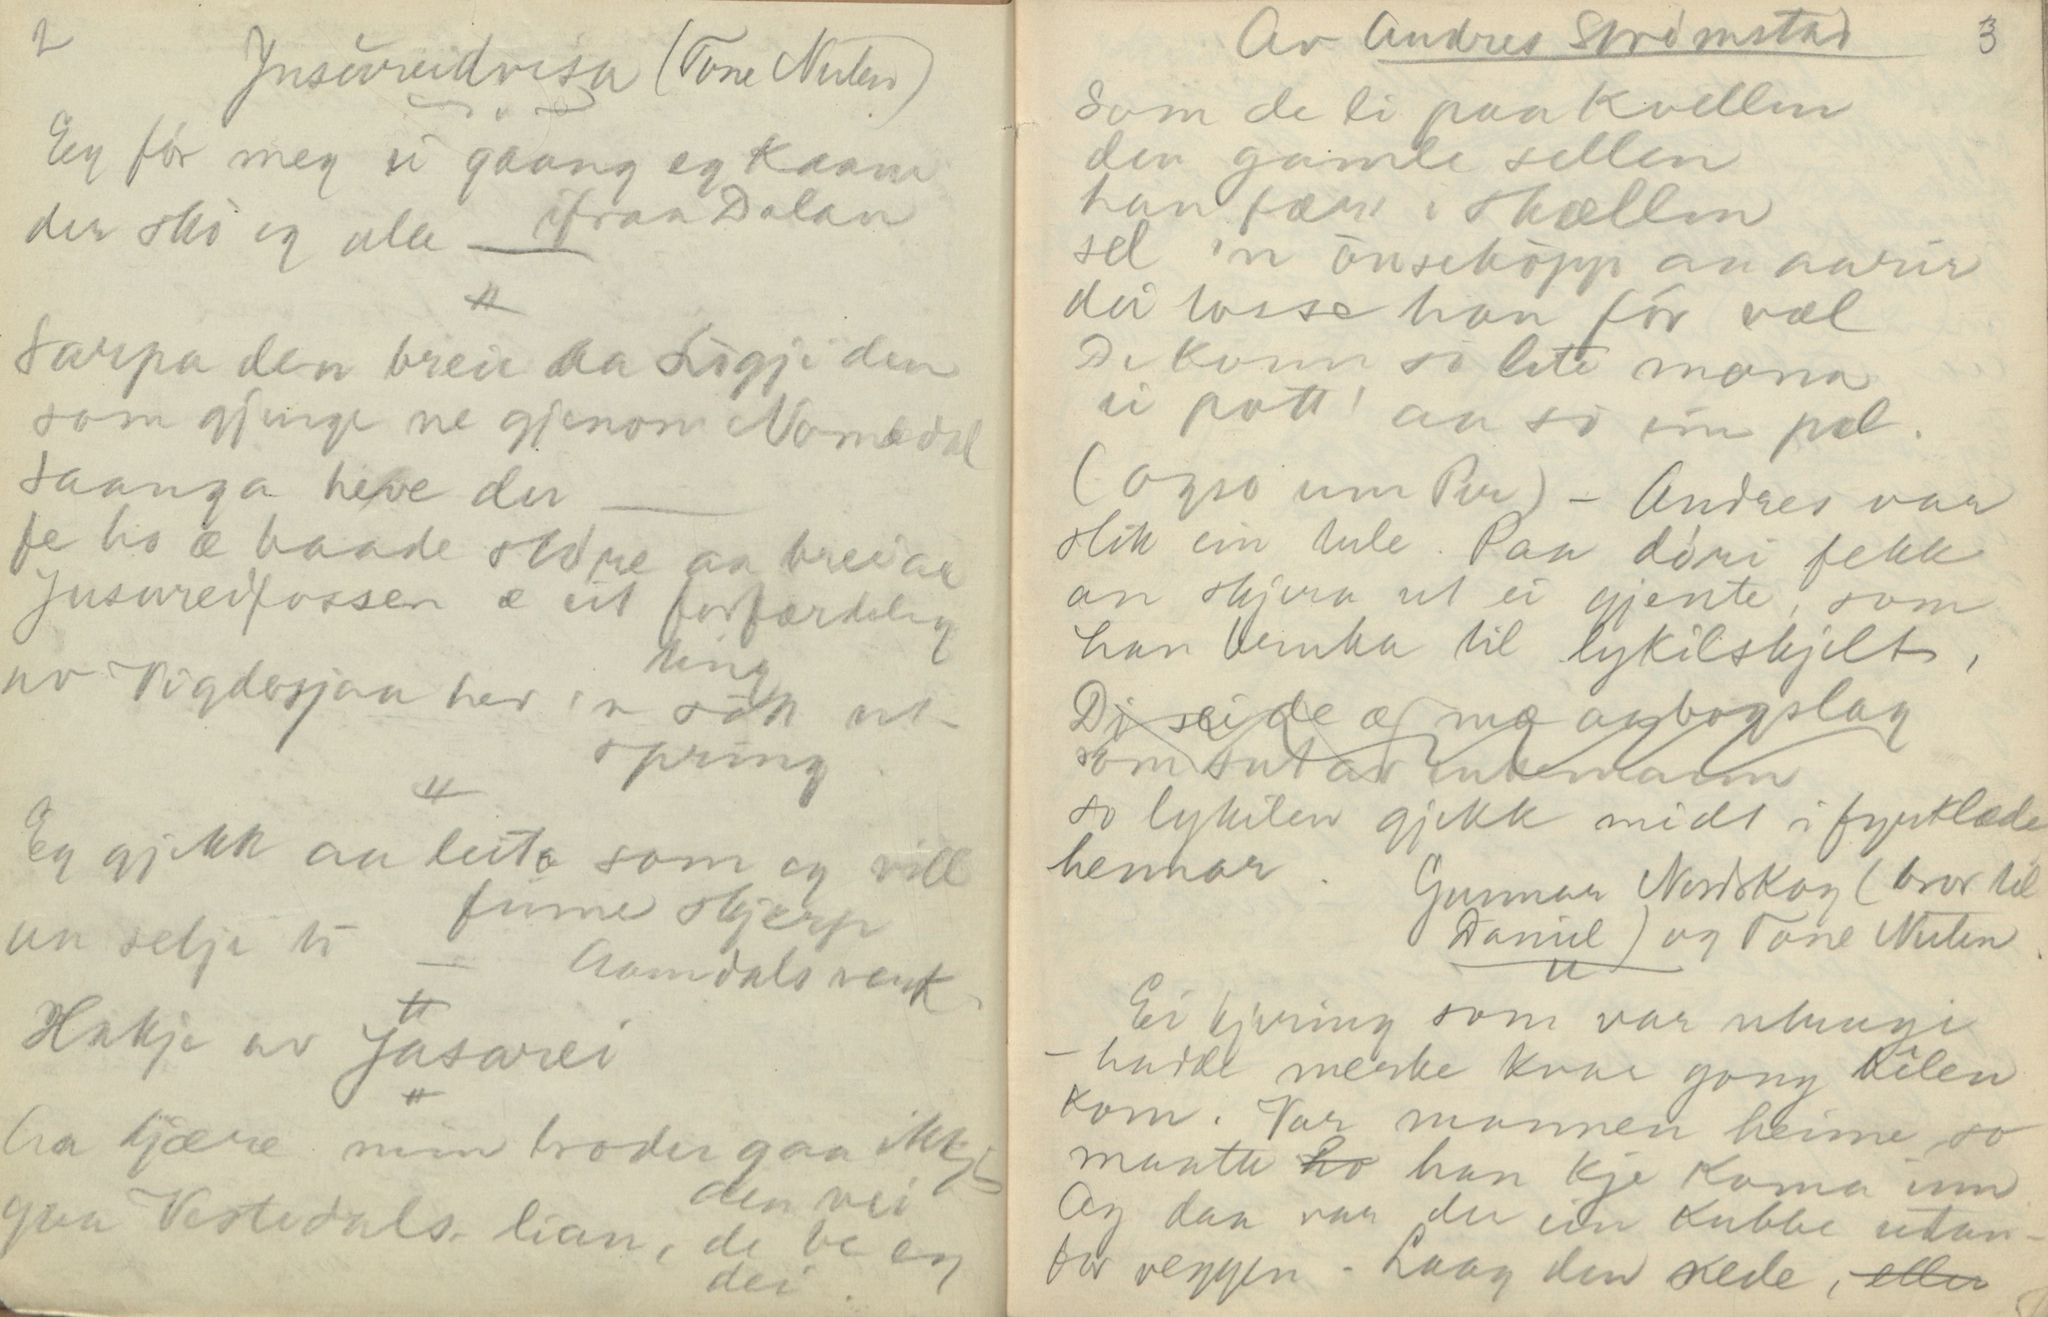 2
Jnsureidvisa (Tone Nuten)
Eg fór meg ei gaang eg kaam
ifraa Dalan
der sko eg ala
"
Sarpa den breie aa Lògji den
som gjenge ne gjenom Nomedal
saanga heve der
fe ho æ baade støre aa breiar
Jusureidfossen æ eit forfærdeleg
ting
av Vigdesjaa her 'n søk ut-
spring
"
Eg gjekk aa leita som eg vill
finne skjerp
un selje ti
Aamdals verk.
"
Hakje av Jusurei
"
ha kjære min broder gaa ikkje
den vei
gaa Vestedals-lian, de be eg
dei.
Av Andres Strømstad 3
Som de li paa kvellen
den gamle sellen
han fær i skællen
sel 'n önseköpp aa aarir
dei losse han fór væl
De konn so lite mona
ei pott' aa so ein pel.
(ogso um Per) – Andres var
slik ein tule. Paa döri fekk
an skjera ut ei gjente, som
han bruka til lykilskjelt,
Di seide æ mæ aabogslag
som
so lykilen gjekk midt i fyreklæde
hennar.
Gunnar Nordskog (bror til
Daniel) og Tone Nuten.
"
Ei kjering som var utrugi
– hadde merke kvar gong bîlen
kom. Var mannen heime so
maatte ho han kje koma inn
Og daa var der ein kubbe utan-
for veggen – Laag den nede, eller